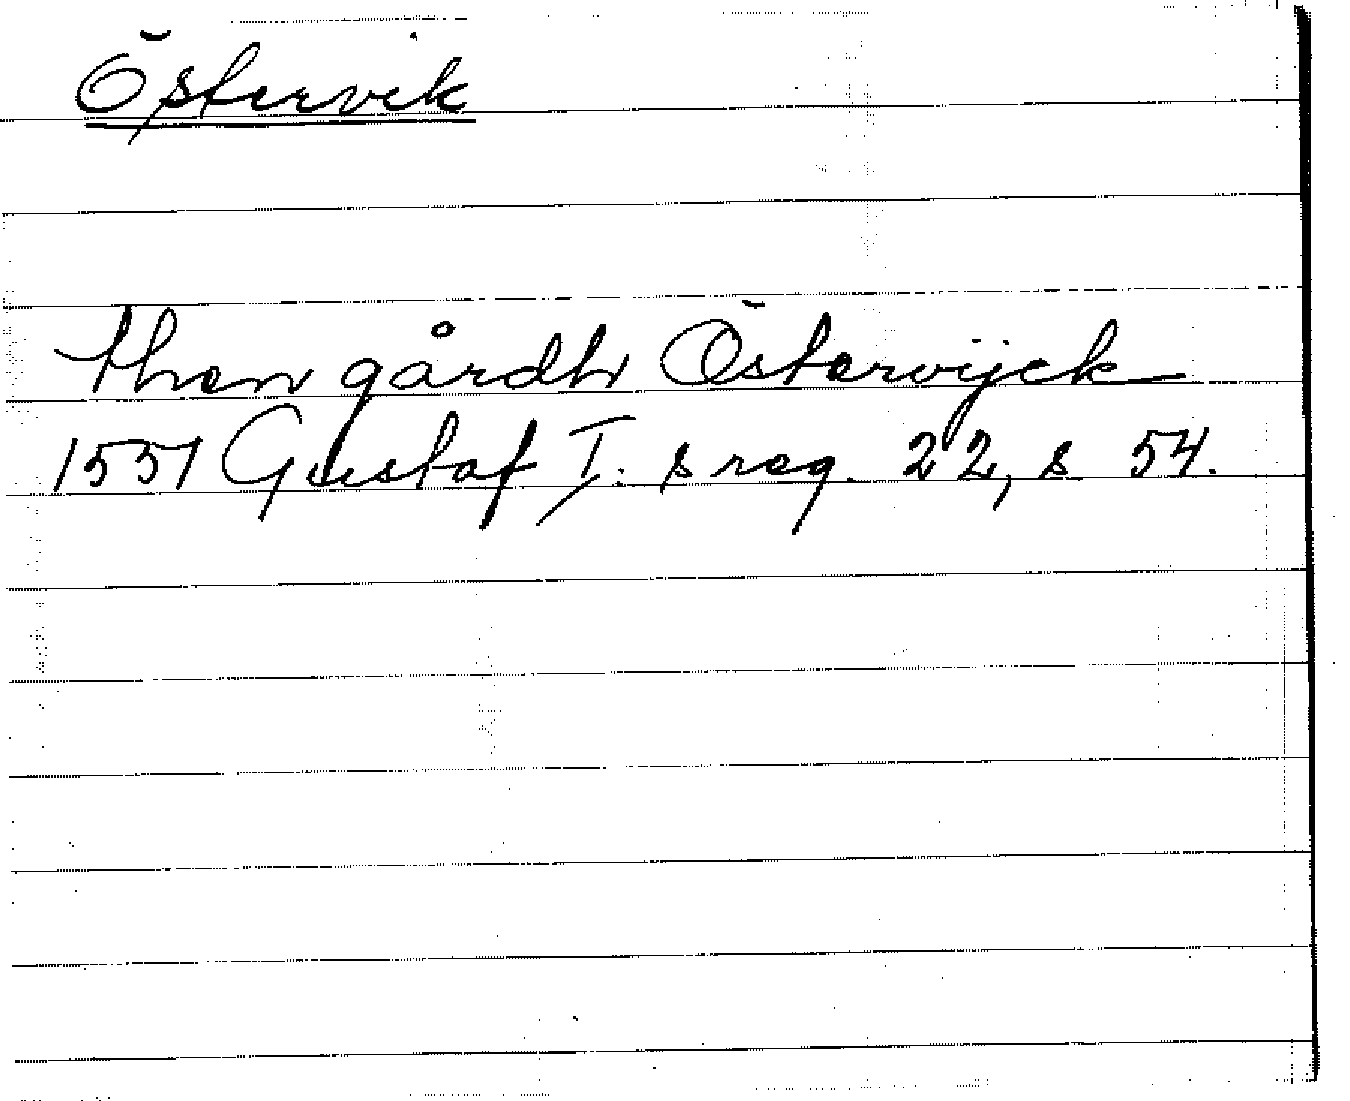 Östervik
then gårdh Östervijck
1551 Gustaf I:s reg. 22, s 54.